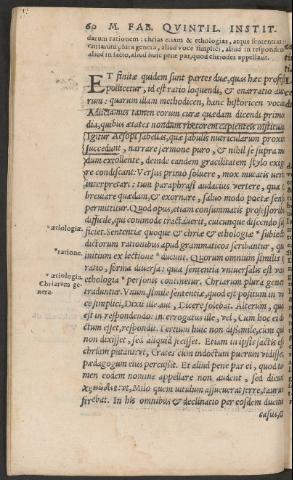 60 M. FAB. QVINTIL. INSTIT.
darum rationem : chrias etiam & ethologias, atque sententias:
chriarum plura genera, aliud voce simplici, aliud in respondendo
aliud in facto, aliud huic pene par, quod chriodes appellatur.
ET finitæ quidem sunt partes duæ, quas hæc professio
pollicetur, id est ratio loquendi, & enarratio aucto
rum: quarum illam methodicen, hanc historicen vocant.
Adijciamus tamen eorum curæ quædam dicendi primor
dia, quibus ætates nondum rhetorem capientes instituant.
Igitur Aesopi fabellas, quæ fabulis nutricularum proximè
succedunt, narrare sermone puro, & nihil se supra mo
dum extollente, deinde eandem gracilitatem stylo exige
re condiscant: Versus primò soluere, mox mutatis verbis
interpretari: tum paraphrasi audacius vertere, qua &
breuiare quædam, & exornare, saluo modò poetæ sensu
permittitur. Quod opus, etiam consummatis professoribus
difficile, qui commodè tractauerit, cuicunque discendo suf
ficiet. Sententiæ quoque & chriæ & ethologiæ * subiectis
dictorum rationibus apud grammaticos scribantur, quia
initium ex lectione * ducunt. Quorum omnium similis est
ratio, forma diuersa: quia sententia vniuersalis est vox,
ethologia * personis continetur. Chriarum plura genera
traduntur. Vnum, simile sententiæ, quod est positum in vo
ce simplici, Dixit ille aut, Dicere solebat. Alterum, quod
est in respondendo: interrogatus ille, vel, Cum hoc ei di
ctum esset, respondit. Tertium huic non dissimile, cum quis
non dixisset, sed aliquid fecisset. Etiam in ipsis factis esse
chriam putant: vt, Crates cum indoctum puerum vidisset,
pædagogum eius percussit. Et aliud penè par ei, quod ta
men eodem nomine appellare non audent, sed dicunt
Milo quem vitulum assueuerat ferre, taurum
ferebat. In his omnibus & declinatio per eosdem ducitur
casus, &
*ætiologiæ.
*ratione.
*ætiologia.
Chriarum ge-
nera.